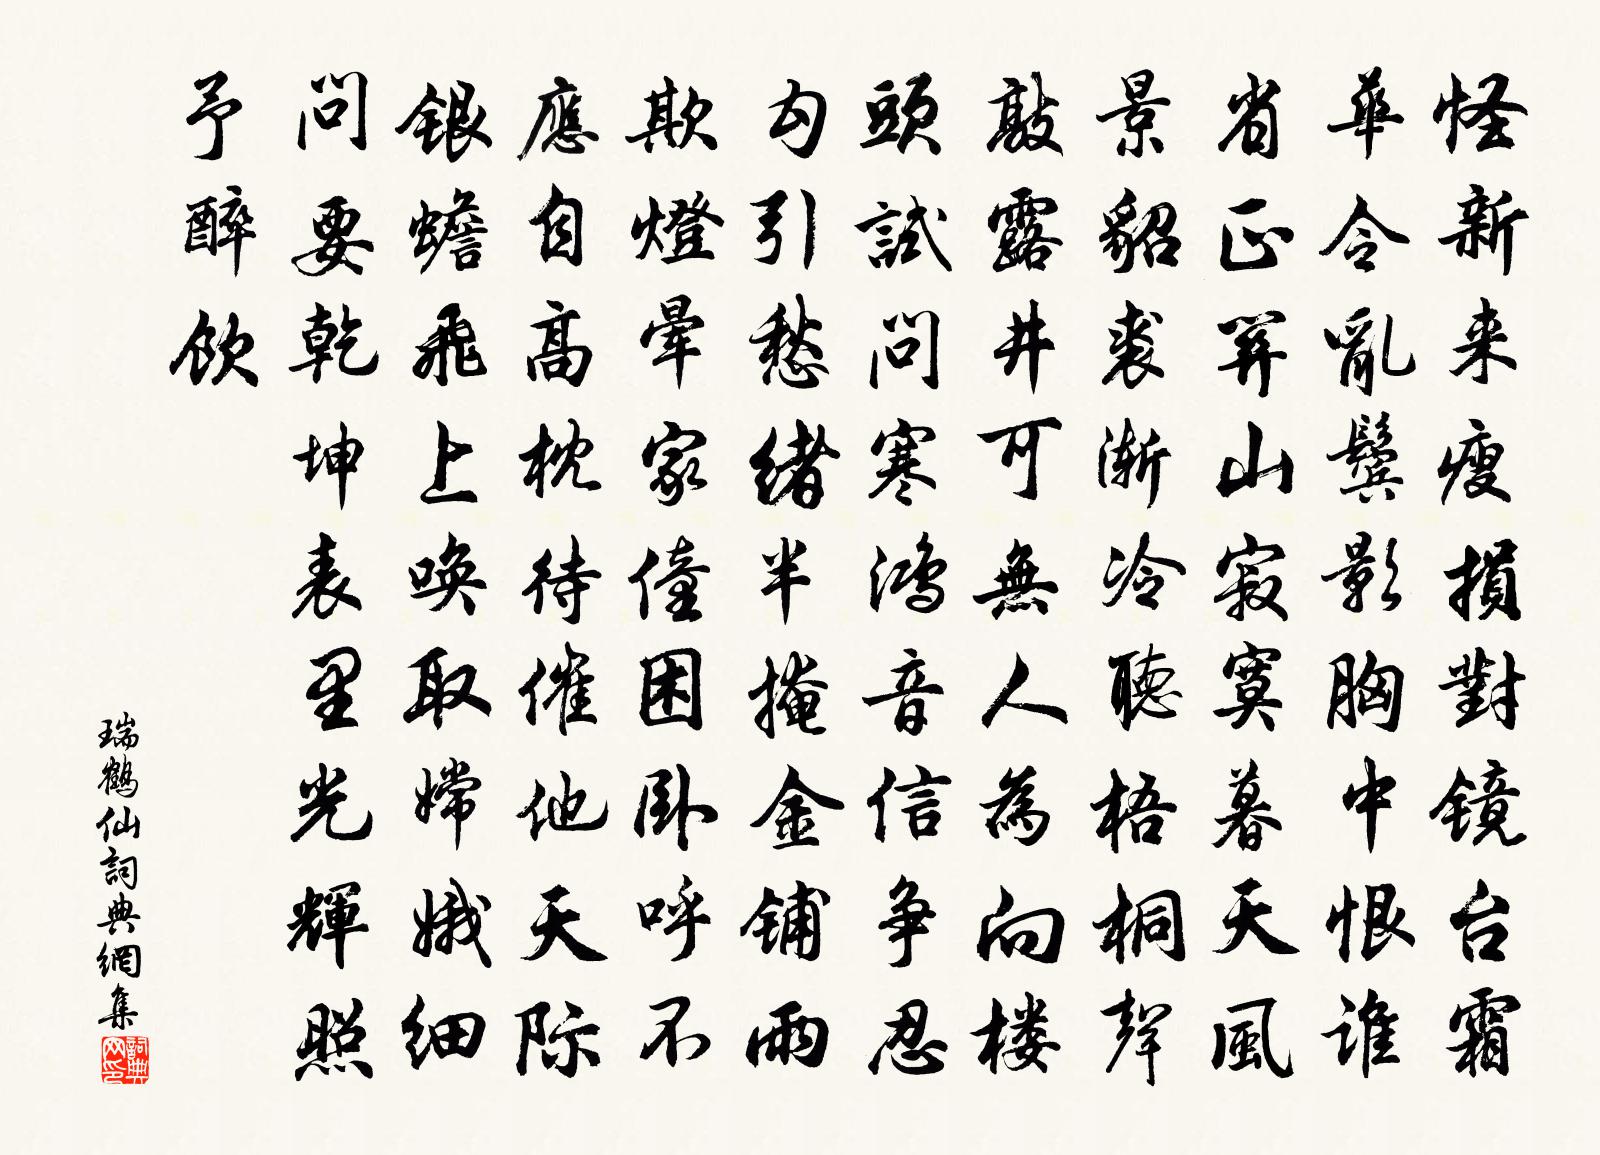 怪新来瘦損對镜台霜
華令亂鬓影胸中恨谁
省正關山寂寞暮天風
景貂裘渐冷聽梧桐聲
敲露井可無人為向楼
頭試問寒鸿音信争忍
勾引愁緒半掩金鋪雨
欺燈暈家僮困卧呼不
應自高枕待催他天际
銀蟾飛上唤取嫦娥细
問要乾坤表里光輝照
予醉飲
瑞鶴仙詞典網集
詞典网印